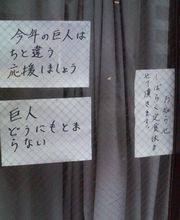 今年の巨人は
ちと違う
応援しましょう
巨人
どうにもとま
らない
おしらせ
しばらく定食休ま
せて頂きます